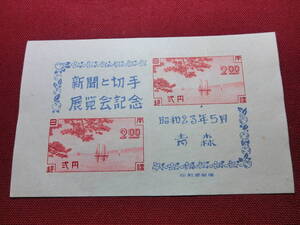 新聞と切手
展覧会記念
日本
2.00
弐円
郵便
昭和23年5月
青森
日本
2.00
弐円
郵便